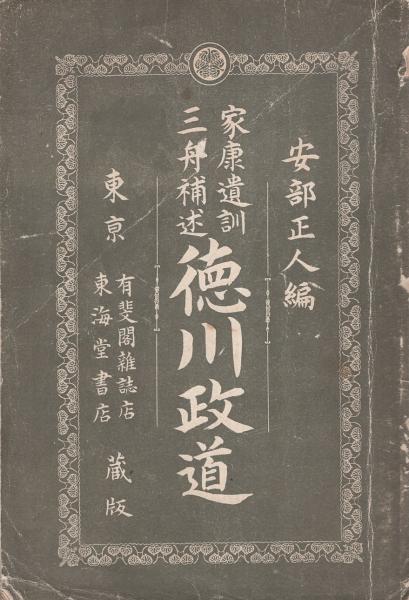 安部正人編
家康遺訓
三舟補述
徳川政道
東亰
有斐閣雜誌店
東海堂書店
蔵版